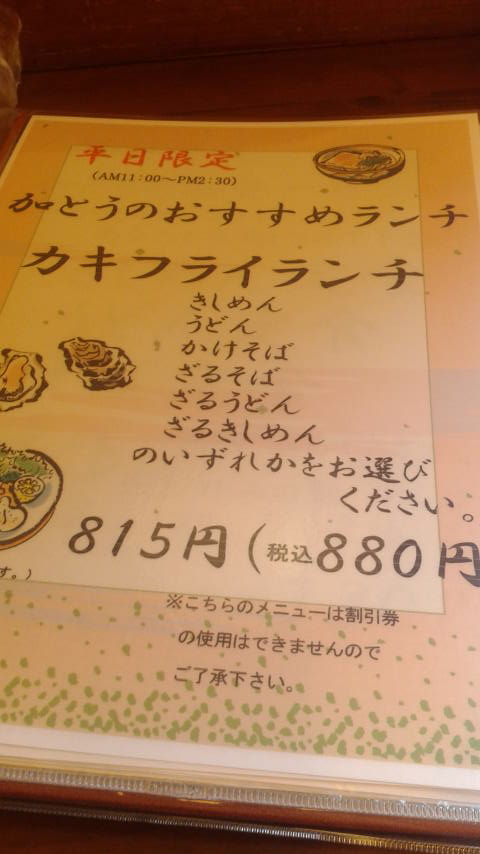 平日限定
(AM11:00～PM2:30)
加とうのおすすめランチ
カキフライランチ
きしめん
うどん
かけそば
ざるそば
ざるうどん
ざるきしめん
のいずれかをお選び
ください。
815円(税込880円
す。)
※こちらのメニューは割引券
の使用はできませんので
ご了承下さい。